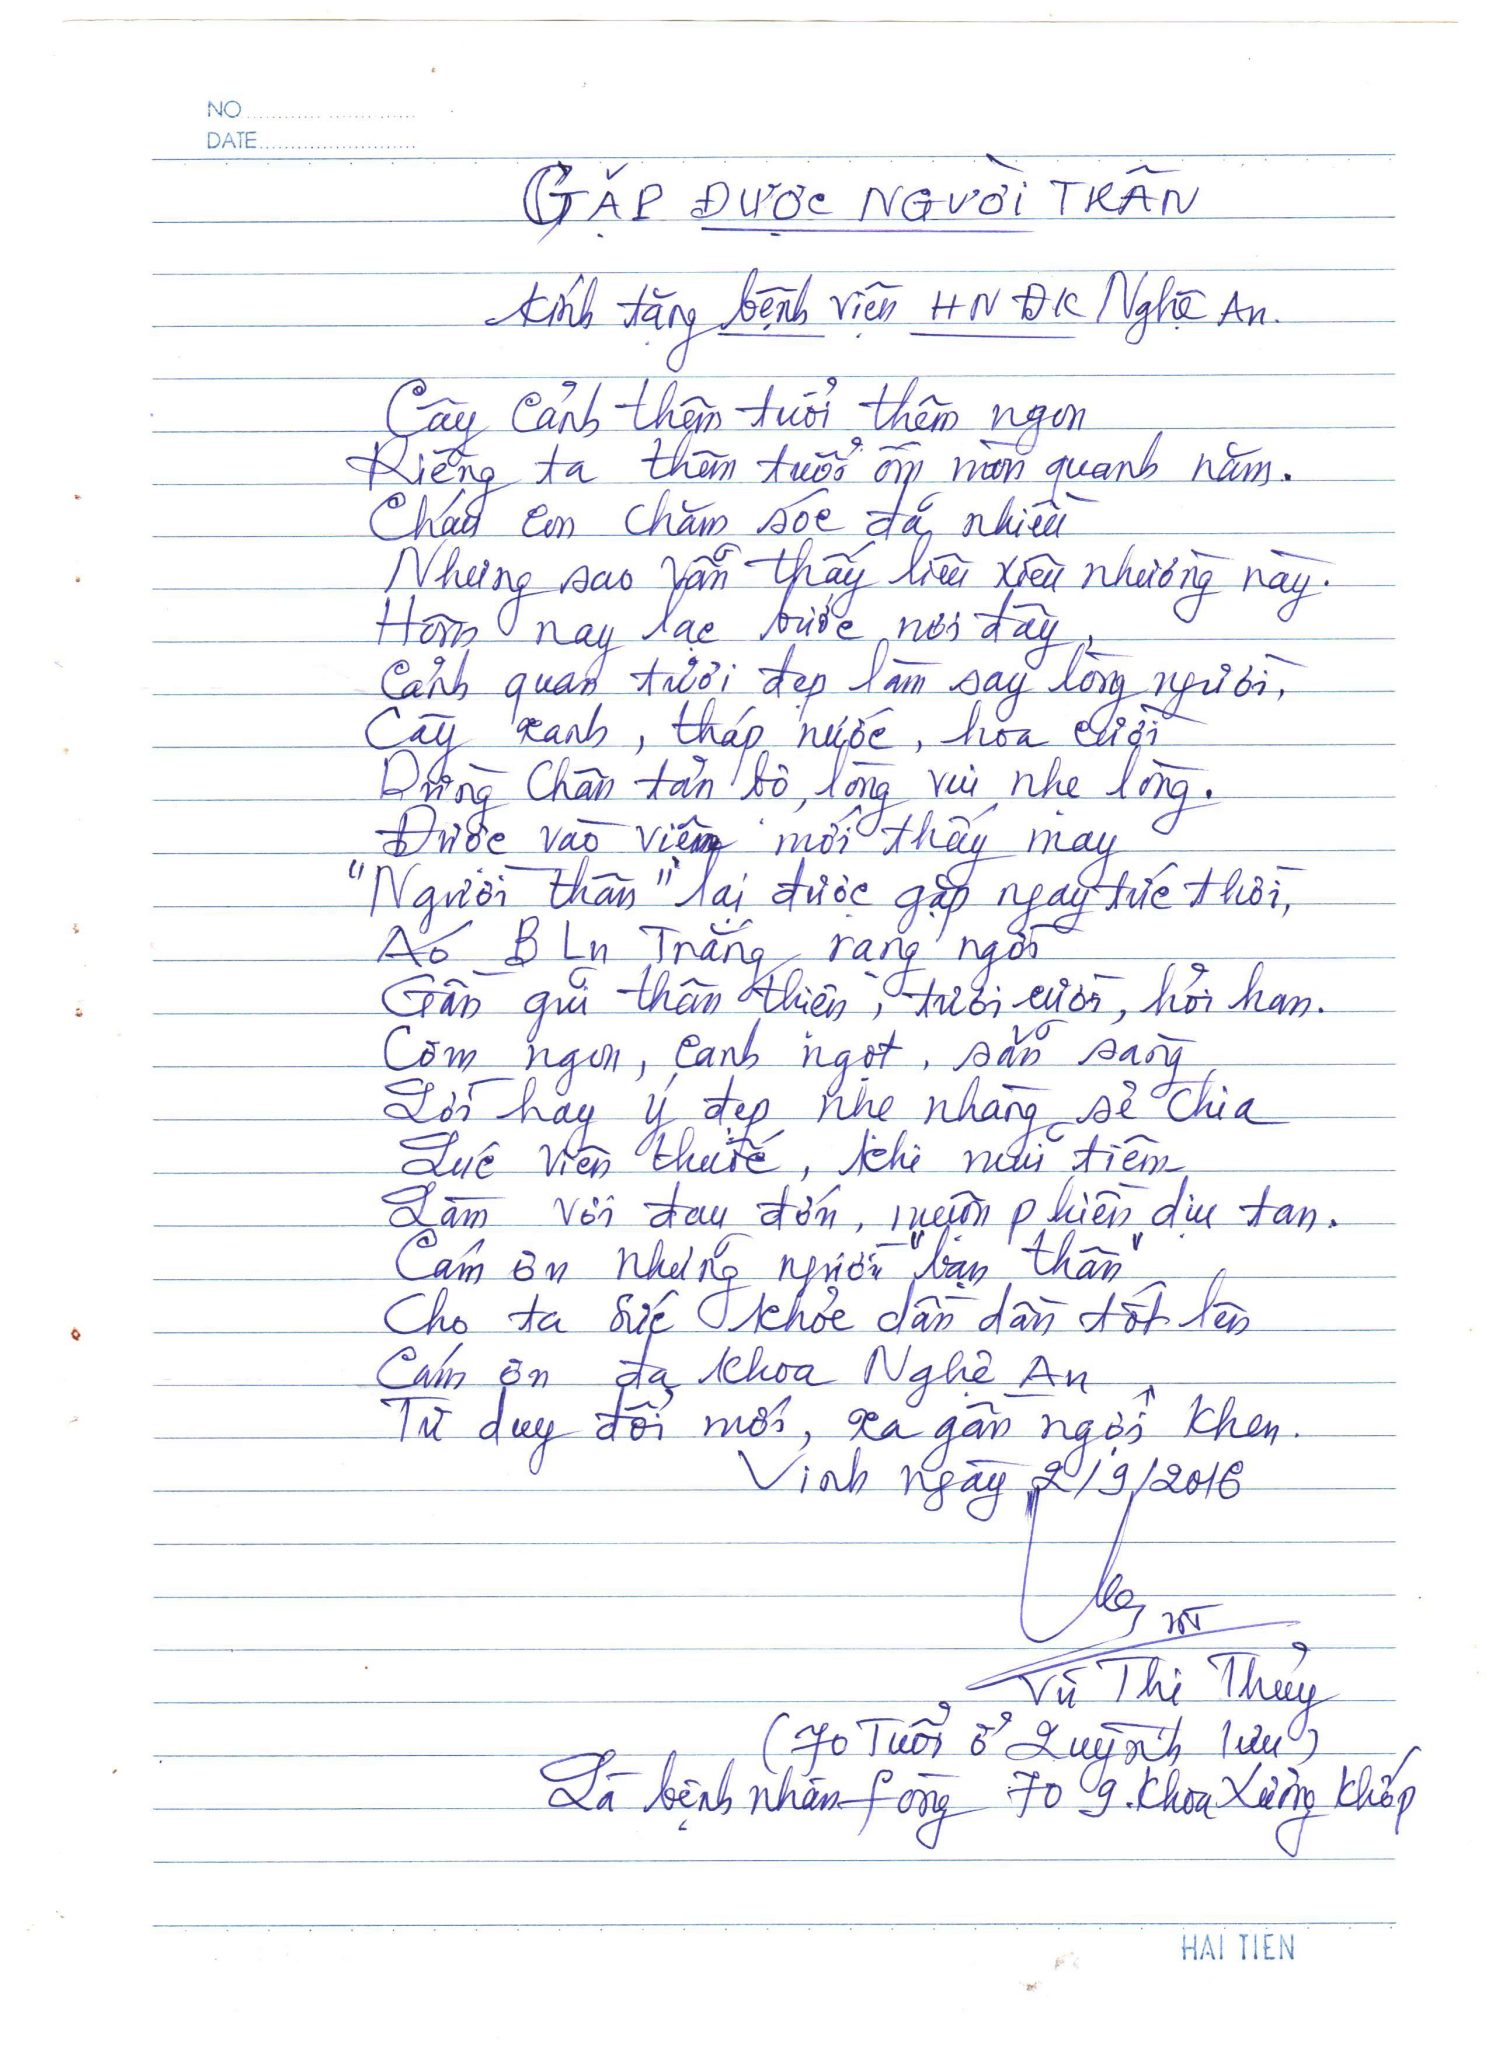 NO
DATE
GẶP ĐƯỢC NGƯỜI THÂN
Kính tặng bệnh viện HN ĐK Nghệ An.
Cây cảnh thêm tuổi thêm ngon
Riêng ta thêm tuổi ốm mòn quanh năm.
Cháu con chăm sóc đã nhiều
Nhưng sao vẫn thấy liêu xiêu nhường này.
Hôm nay lạc bước nơi đây,
Cảnh quan tươi đẹp làm say lòng người,
Cây xanh, tháp nước, hoa cười
Dừng chân tản bộ, lòng vui nhẹ lòng.
Được vào viện mới thấy may
"Người thân" lại được gặp ngay tức thời,
Áo B Lu Trắng rạng ngời
Gần gũi thân thiện, tươi cười, hỏi han.
Cơm ngon, canh ngọt, sẵn sàng
Lời hay ý đẹp nhẹ nhàng sẻ chia
Lúc viên thuốc, khi mũi tiêm
Làm vơi đau đớn, muộn phiền dịu tan.
Cám ơn những người "bạn thân"
Cho ta sức khỏe dần dần tốt lên
Cám ơn đa khoa Nghệ An
Tư duy đổi mới, xa gần ngợi khen.
Vinh ngày 2/9/2016
Vũ Thị Thủy
(70 Tuổi ở Quỳnh lưu)
Là bệnh nhân fòng 709. Khoa Xương Khớp
HAI TIEN